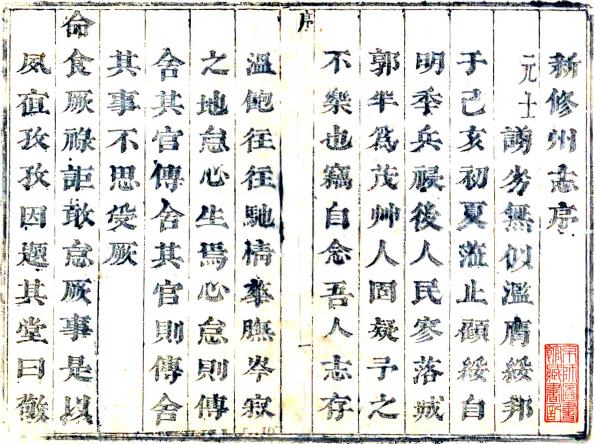 新修州志序
元士譾劣無似濫膺綏邦
于己亥初夏蒞止顧綏自
明季兵祲後人民寥落城
郭半為茂艸人固疑予之
不樂也竊自念吾人志存
序
一
溫飽往往馳情華膴岑寂
之地怠心生焉心怠則傳
舍其官傳舍其官則傳舍
其事不思受厥
命食厥祿詎敢怠厥事是以
夙宿孜孜因題其堂曰敬